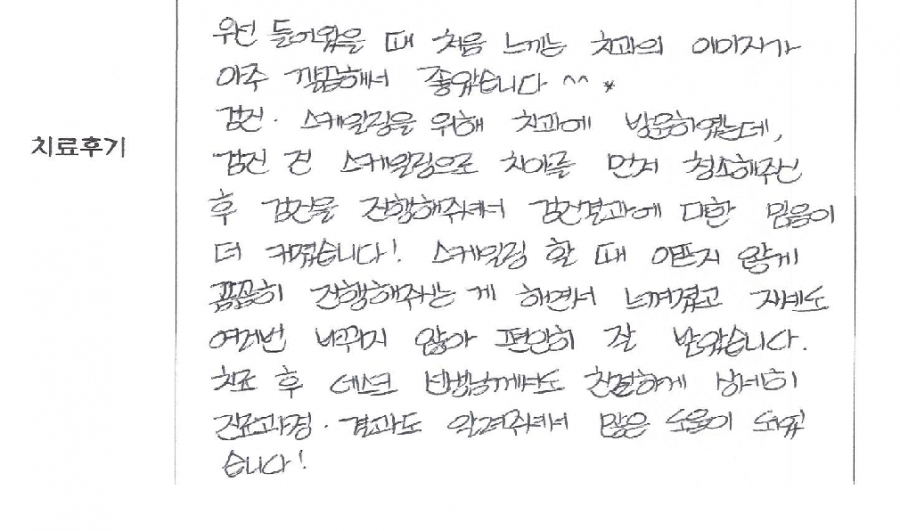 우선 들어왔을 때 처음 느끼는 치과의 이미지가
아주 깔끔해서 좋았습니다 ^^ *
검진 · 스케일링을 위해 치과에 방문하였는데,
치료후기
검진 전 스케일링으로 치아를 먼저 청소해주신
후 검진을 진행해주셔서 검진결과에 대한 믿음이
더 커졌습니다! 스케일링 할 때 아프지 않게
꼼꼼히 진행해주시는 게 하면서 느껴졌고 자세도
여러번 바꾸지 않아 편안히 잘 받았습니다.
치료 후 데스크 선생님께서도 친절하게 상세히
진료과정 · 결과도 알려주셔서 많은 도움이 되었
습니다!